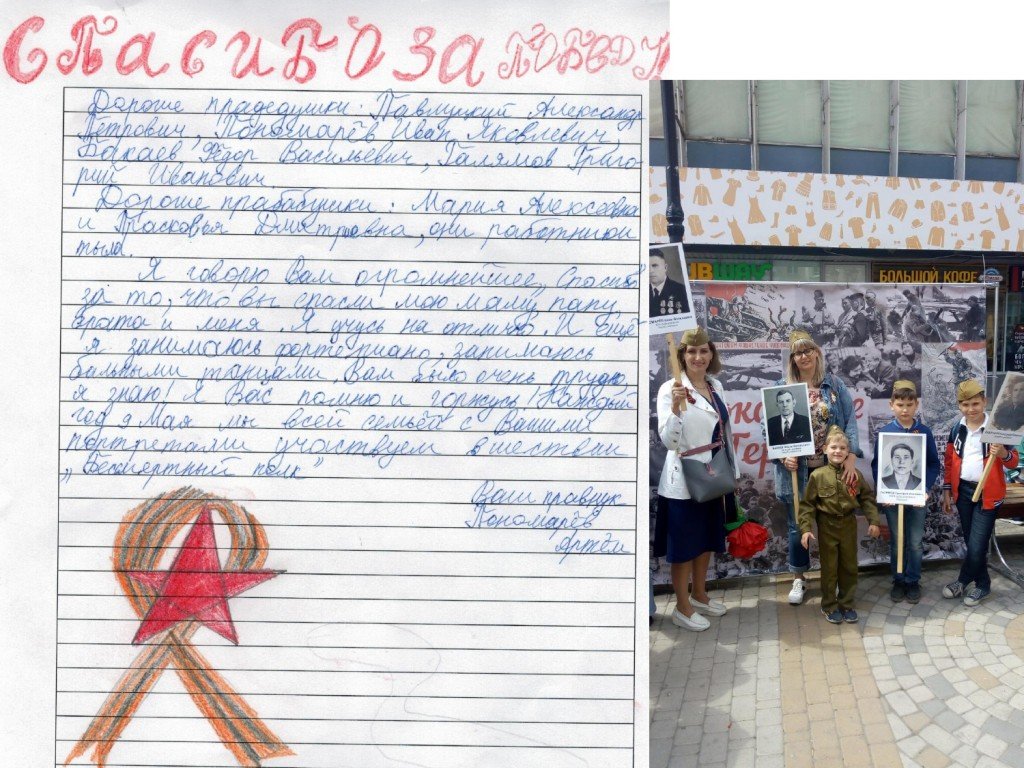 Спасибо за победу
Дорогие прадедушки: Павлицкий Александр
Петрович, Пономарёв Иван Яковлевич,
Бакаев Фёдор Васильевич, Галямов Григо-
рий Иванович.
Дорогие прабабушки: Мария Алексеевна
и Прасковья Дмитревна, они работники
тыла.
Я говорю Вам огромнейшее „Спасибо"
за то, что вы спасли мою маму, папу,
брата и меня. Я учусь на отлично. И ещё
я занимаюсь фортепиано, занимаюсь
бальными танцами. Вам было очень трудно,
я знаю! Я Вас помню и горжусь! Каждый
год 9 Мая мы всей семьёй с Вашими
портретами участвуем в шествии
„Бессмертный полк"
Ваш правнук
Пономарёв
Артём
UBWAY
БОЛЬШОЙ КОФЕ